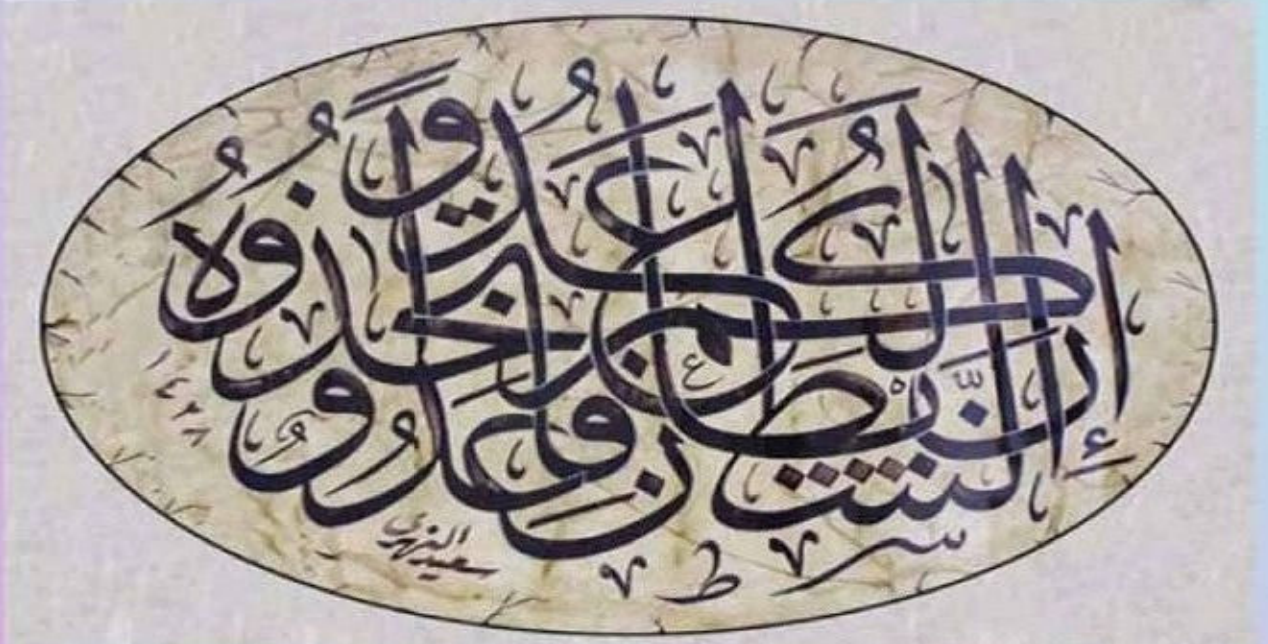 إن الشيطان لكم عدو فاتخذوه عدوا
سعيد النهري
١٤٣٨